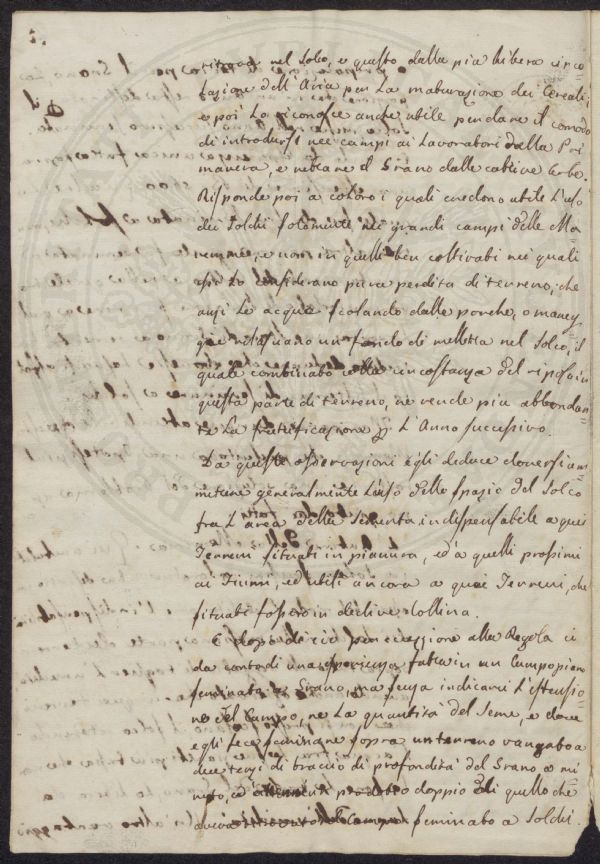 2.
ritrova nel Solco, e questo dalla più libera circo
lazione dell'Aria per la maturazione dei Cereali;
e poi lo riconosce anche utile per dare il comodo
di introdursi nei campi ai Lavoratori dalla Pri
mavera, e nettare il Grano dalle cattive Erbe.
Risponde poi a coloro i quali credono utile l'uso
dei Solchi solamente nei grandi campi delle Ma
remme, e non in quelli ben coltivati nei quali
essi lo considerano pura perdita di terreno; che
anzi le acque scolando dalle porche, o maney
que rilasciano un fondo di melletta nel Solco, il
quale combinato colla circostanza del riposo in
questa parte di terreno, ne rende più abbondan
te la fruttificazione l'Anno successivo.
Da queste osservazioni egli deduce doversi am
mettere generalmente l'uso dello spazio del Solco
fra l'area della Sementa, indispensabile a quei
Terreni situati in pianura, ed a quelli prossimi
ai Fiumi, ed utili ancora a quei Terreni, che
situati fossero in declive Collina.
E dopo di ciò per eccezione alla Regola ci
da conto di una esperienza fatta in un Campo piano
seminato a Grano, ma senza indicarci l'estensio
ne del Campo, ne la quantità del Seme, e dove
egli fece seminare sopra un terreno vangato a
due terzi di braccio di profondità del Grano a mi
nuto, ed prodotto doppio di quello che
aveva Campo seminato a Solchi.